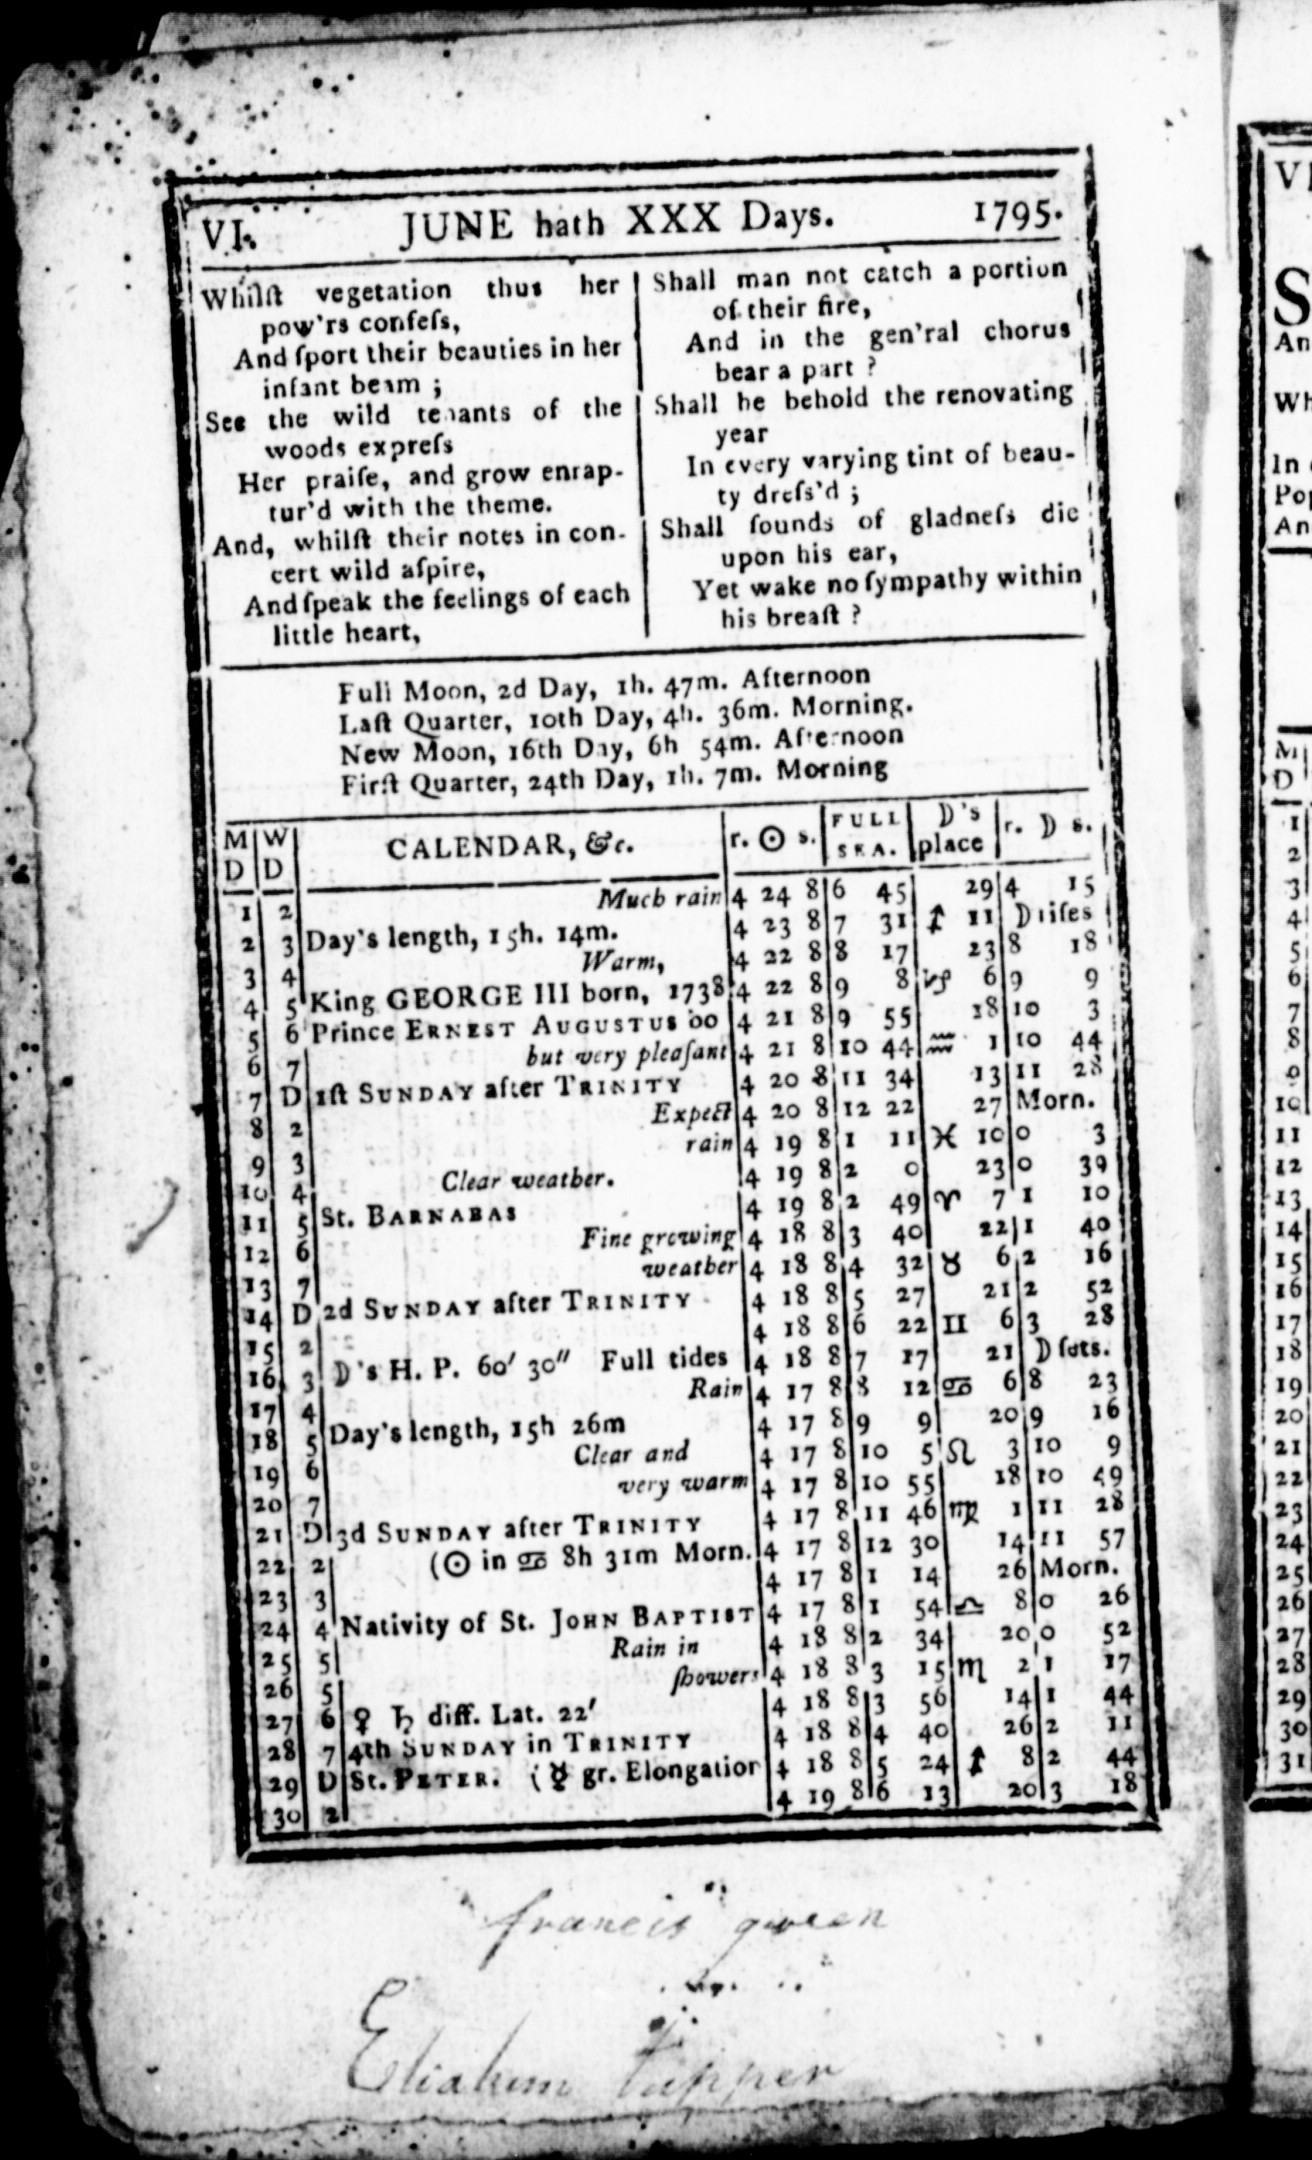 VI. JUNE hath XXX Days. 1795.
Whilſt vegetation thus her
pow'rs confeſs,
And ſport their beauties in her
infant beam ;
See the wild tenants of the
woods expreſs
Her praiſe, and grow enrap-
tur'd with the theme.
And, whilſt their notes in con-
cert wild aſpire,
And ſpeak the feelings of each
little heart,
Shall man not catch a portion
of their fire,
And in the gen'ral chorus
bear a part ?
Shall he behold the renovating
year
In every varying tint of beau-
ty dreſs'd ;
Shall ſounds of gladneſs die
upon his ear,
Yet wake no ſympathy within
his breaſt ?
Full Moon, 2d Day, 1h. 47m. Afternoon
Laſt Quarter, 10th Day, 4h. 36m. Morning.
New Moon, 16th Day, 6h 54m. Afternoon
Firſt Quarter, 24th Day, 1h. 7m. Morning
M D W D CALENDAR, &c. r. ☉ s. FULL SEA. ☽'s place r. ☽ s.
1 2 Much rain 4 24 8 6 45 29 4 15
2 3 Day's length, 15h. 14m. 4 23 8 7 31 ♐ 11 ☽ riſes
3 4 Warm, 4 22 8 8 17 23 8 18
4 5 King GEORGE III born, 1738 4 22 8 9 8 ♑ 6 9 9
5 6 Prince ERNEST AUGUSTUS bo 4 21 8 9 55 18 10 3
6 7 but very pleaſant 4 21 8 10 44 ♒ 1 10 44
7 D 1ſt SUNDAY after TRINITY 4 20 8 11 34 13 11 28
8 2 Expect 4 20 8 12 22 27 Morn.
9 3 rain 4 19 8 1 11 ♓ 10 0 3
10 4 Clear weather. 4 19 8 2 0 23 0 39
11 5 St. BARNABAS 4 19 8 2 49 ♈ 7 1 10
12 6 Fine growing 4 18 8 3 40 22 1 40
13 7 weather 4 18 8 4 32 ♉ 6 2 16
14 D 2d SUNDAY after TRINITY 4 18 8 5 27 21 2 52
15 2 4 18 8 6 22 ♊ 6 3 28
16 3 ☽'s H. P. 60′ 30″ Full tides 4 18 8 7 17 21 ☽ ſets.
17 4 Rain 4 17 8 8 12 ♋ 6 8 23
18 5 Day's length, 15h 26m 4 17 8 9 9 20 9 16
19 6 Clear and 4 17 8 10 5 ♌ 3 10 9
20 7 very warm 4 17 8 10 55 18 10 49
21 D 3d SUNDAY after TRINITY 4 17 8 11 46 ♍ 1 11 28
22 2 (☉ in ♋ 8h 31m Morn. 4 17 8 12 30 14 11 57
23 3 4 17 8 1 14 26 Morn.
24 4 Nativity of St. JOHN BAPTIST 4 17 8 1 54 ♎ 8 0 26
25 5 Rain in 4 18 8 2 34 20 0 52
26 5 ſhowers 4 18 8 3 15 ♏ 2 1 17
27 6 ♀ ♄ diff. Lat. 22′ 4 18 8 3 56 14 1 44
28 7 4th SUNDAY in TRINITY 4 18 8 4 40 26 2 11
29 D St. PETER. (☿ gr. Elongation 4 18 8 5 24 ♐ 8 2 44
30 2 4 19 8 6 13 20 3 18
francis
Eliakim tupper
VI
S
An
Wh
In
Pop
An
M
D
1
2
3
4
5
6
7
8
9
10
11
12
13
14
15
16
17
18
19
20
21
22
23
24
25
26
27
28
29
30
31